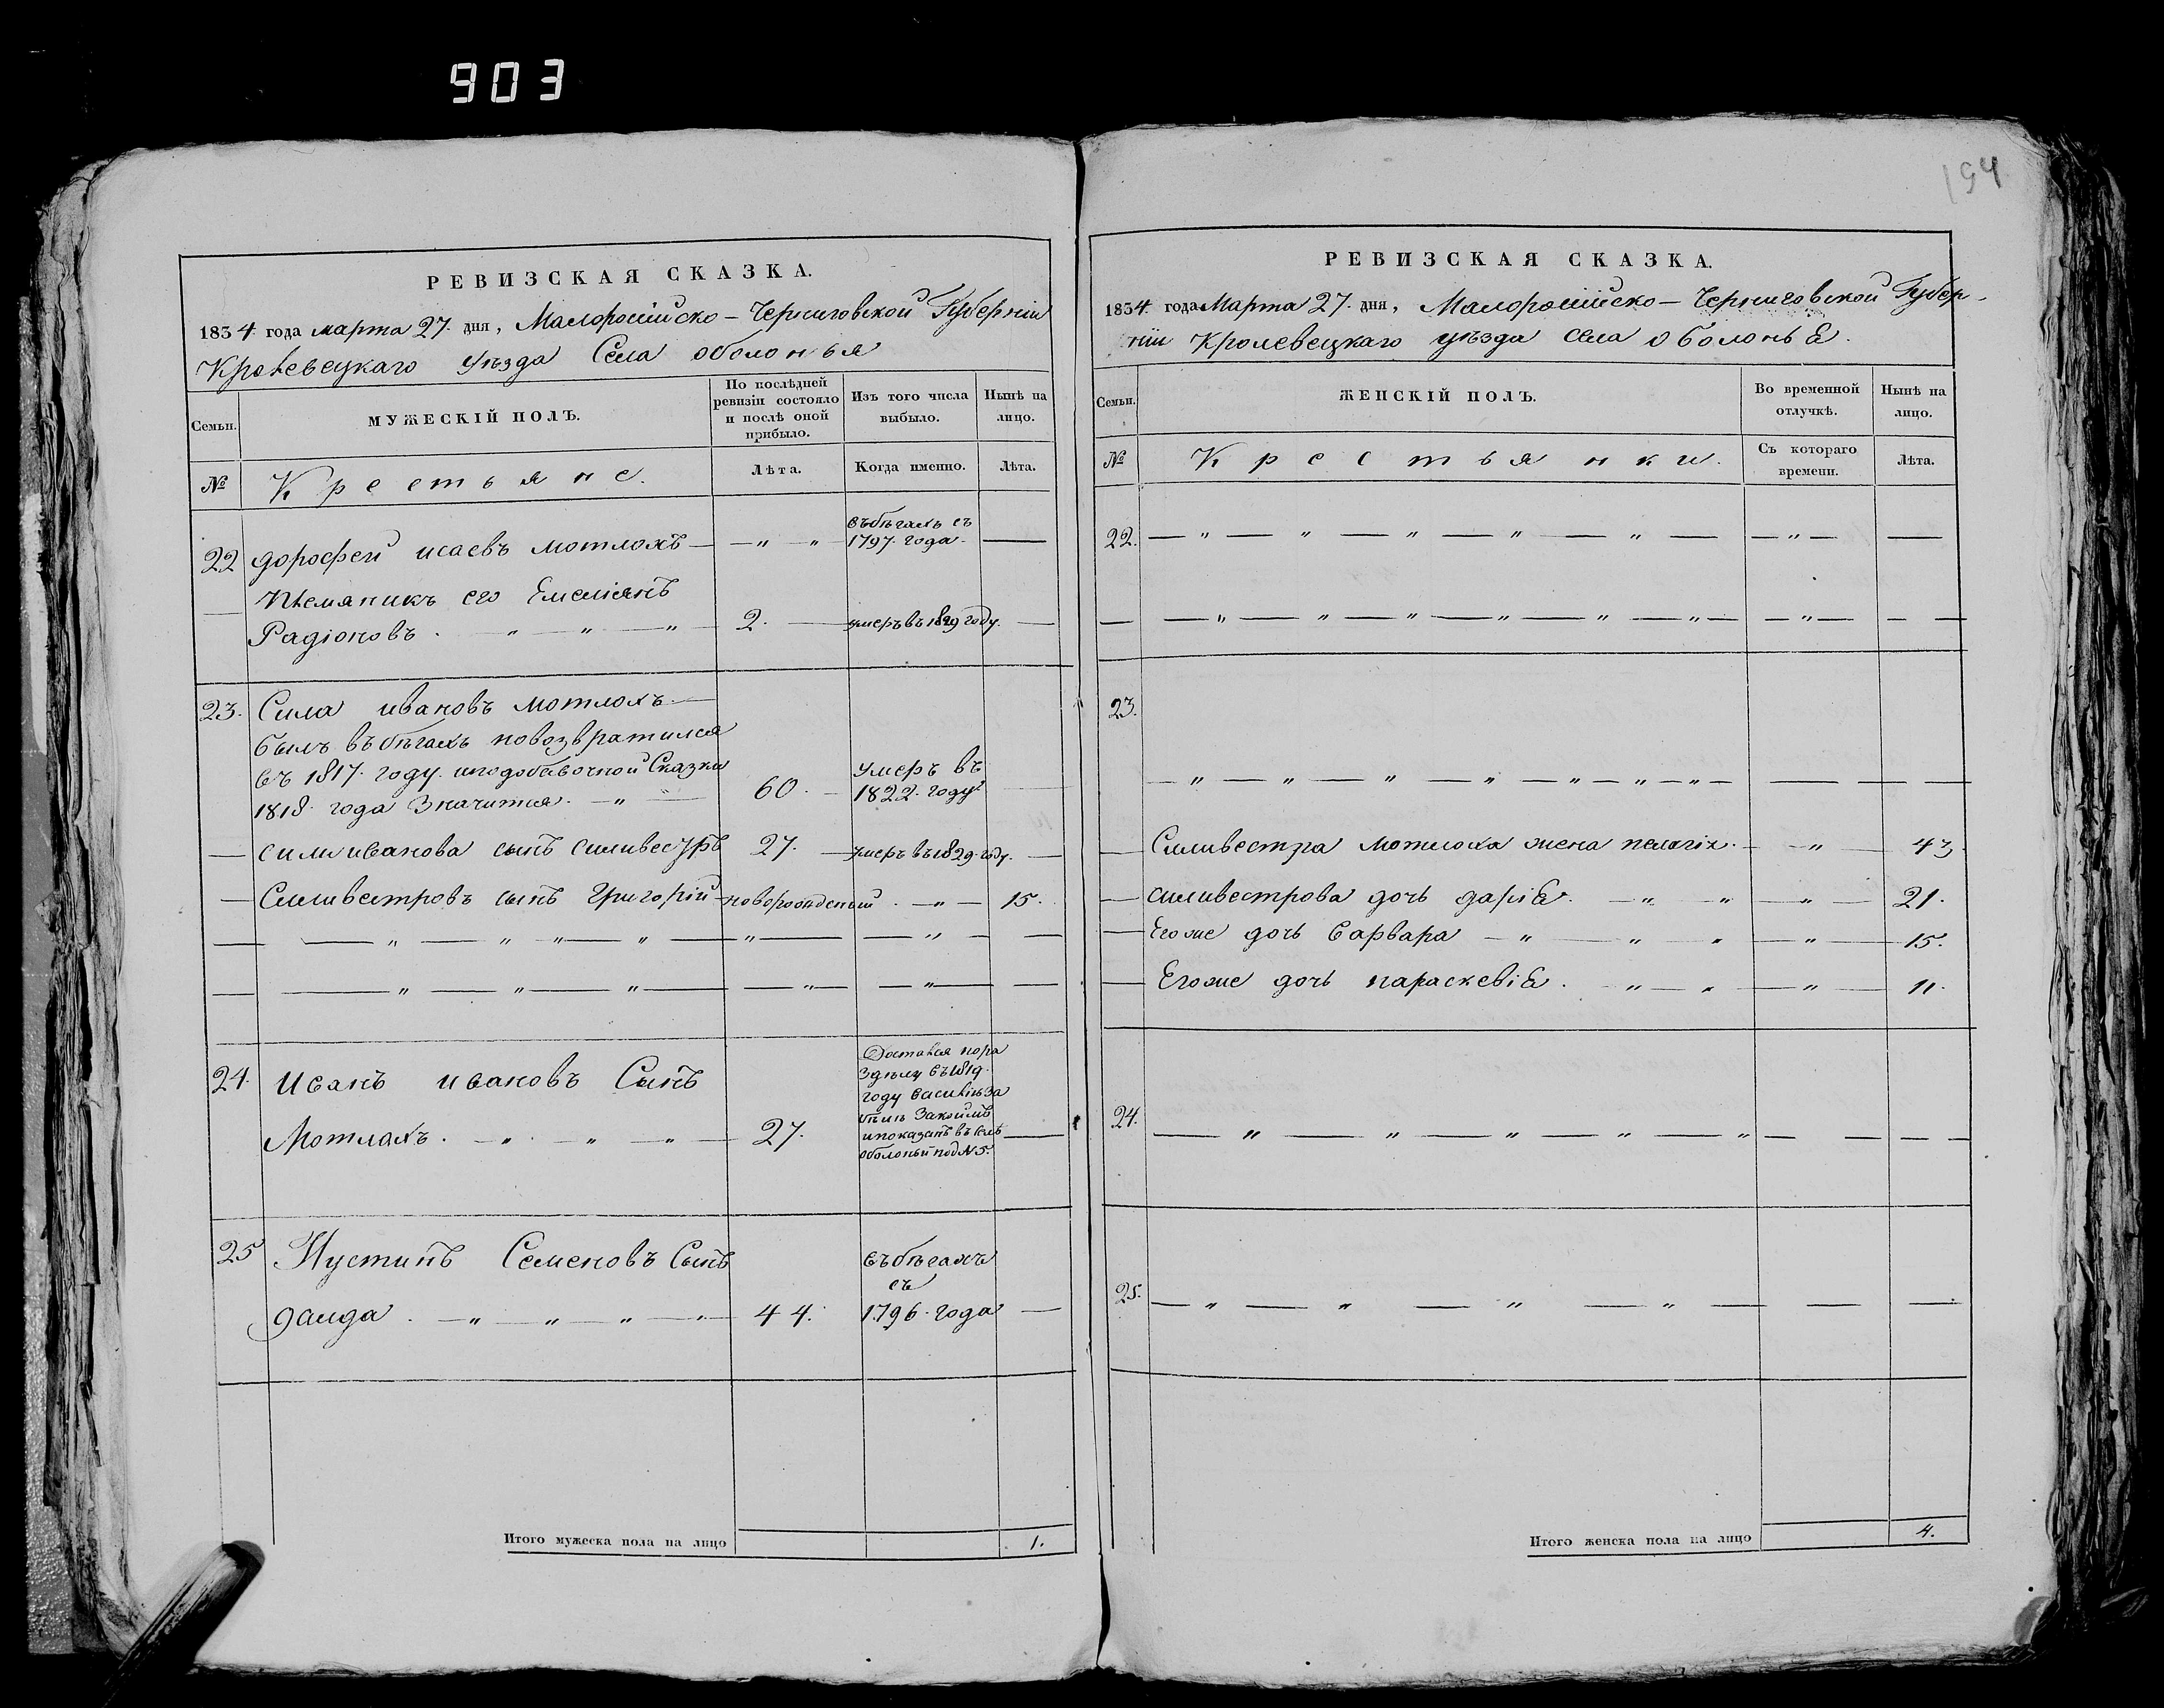 903
154
РЕВИЗСКАЯ СКАЗКА.
1834 года марта 27. дня, Малоросiйско – Черниговской Губернiи
Кролевецкаго уѣзда Села оболонья
Семьи.
МУЖЕСКIЙ ПОЛЪ.
По послѣдней
ревизiи состояло
и послѣ оной
прибыло.
Изъ того числа
выбыло.
Нынѣ на
лицо.
№
Крестьяне.
Лѣта.
Когда именно.
Лѣта.
22 дорофей исаевъ мотлохъ — „ „ въбѣгахъ съ
1797. года.
Племяникъ его Емелiянъ
Радiоновъ. „ „ „ 2. умеръ въ 1829 году.
23. Сила ивановъ мотлохъ
былъ въбѣгахъ новозвратился
въ 1817. году. иподобавочной Сказки
1818. года Значится. „ „ 60. умеръ въ
1822. году
силы иванова сынъ силивестръ 27. умеръ въ 1829. году.
Силивестровъ сынъ григорiй новорожденый. „ 15.
„ „ „ „ „ „
„ „ „ „ „
24. Иванъ ивановъ Сынъ
Мотлахъ. „ „ „ 27.
Достався пора
Здѣлу въ 1819.
году василiю За
Закоимъ
ипоказанъ въ селѣ
оболоньи под N 5.
25 Иустинъ Семеновъ Сынъ въбѣгахъ
съ
дайда. „ „ „ „ 44. 1796. года
Итого мужеска пола на лицо 1.
РЕВИЗСКАЯ СКАЗКА.
1834 года Марта 27. дня, Малоросiйско – Черниговской Губер-
нiи Кролевецкаго уѣзда села оболонья.
Семьи.
ЖЕНСКIЙ ПОЛЪ.
Во временной
отлучкѣ.
Нынѣ на
лицо.
№
Крестьянки.
Съ котораго
времени.
Лѣта.
22. „ „ „ „ „ „
„ „ „ „ „ „ „
23.
„ „ „ „ „ „ „
Силивестра мотлоха жена пелагiя. „ 43.
силивестрова дочь дарiя. „ „ „ 21.
Егоже дочь варвара „ „ „ „ 15.
Егоже дочь параскевiя. „ „ „ 11.
24. „ „ „ „ „
25. „ „ „ „
Итого женска пола на лицо 4.